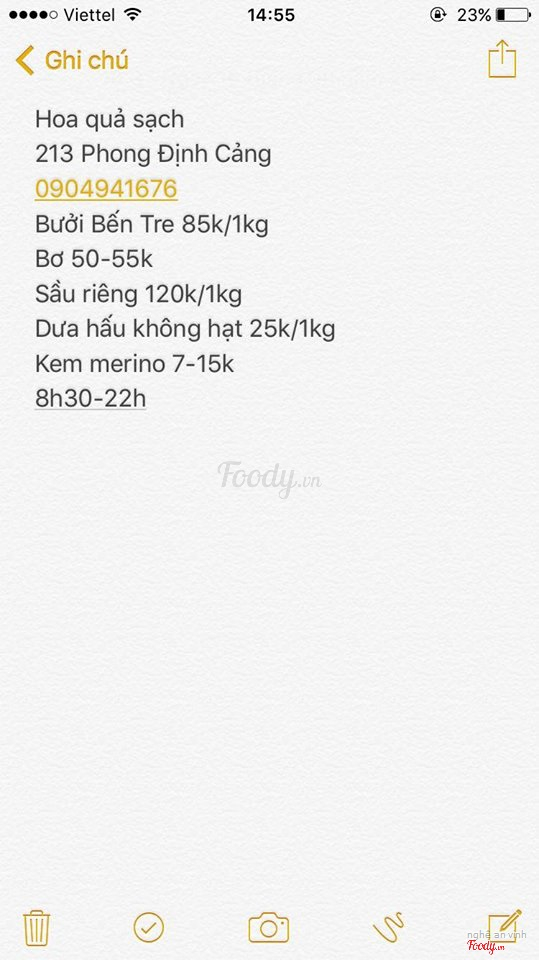 Viettel 14:55 23%
Ghi chú
Hoa quả sạch
213 Phong Định Cảng
0904941676
Bưởi Bến Tre 85k/1kg
Bơ 50-55k
Sầu riêng 120k/1kg
Dưa hấu không hạt 25k/1kg
Kem merino 7-15k
8h30-22h
Foody.vn
nghệ an vinh
Foody.vn